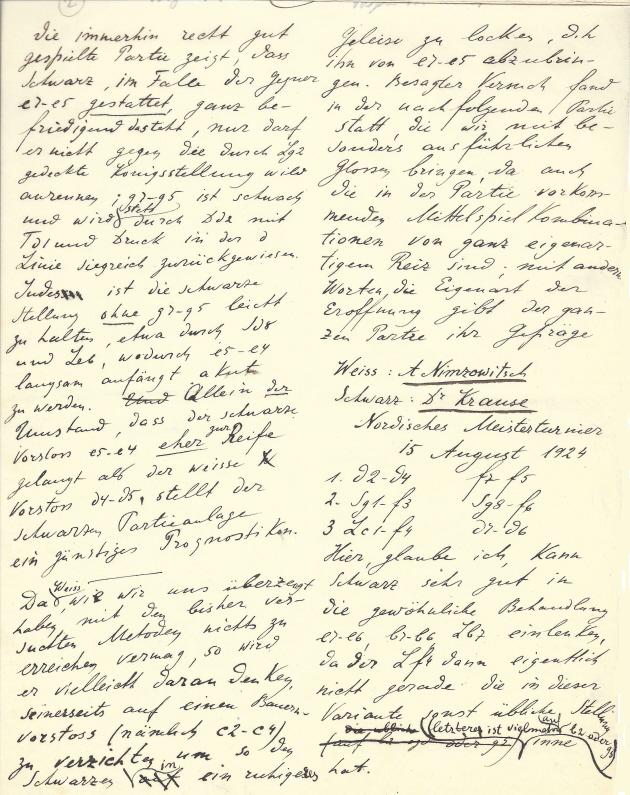 (2)
die immerhin recht gut
gespielte Partie zeigt, dass
Schwarz, im Falle der Gegner
e7-e5 gestattet, ganz be-
friedigend dasteht, nur darf
er nicht gegen die durch Lg2
gedeckte Königsstellung wild
anrennen; g7-g5 ist schwach
und wird stets durch Dd2 mit
Td1 und Druck in der d
Linie siegreich zurückgewiesen.
Indes ist die schwarze
Stellung ohne g7-g5 leicht
zu halten, etwa durch Sd8
und Le6, wodurch e5-e4
langsam anfängt akut
zu werden. Und Allein der
Umstand, dass der schwarze
Vorstoss e5-e4 eher zur Reife
gelangt als der weisse
Vorstoss d4-d5, stellt der
schwarzen Partieanlage
ein günstiges Prognostikon.
Da Weiss, wie wir uns überzeugt
haben, mit den bisher ver-
suchten Metoden nichts zu
erreichen vermag, so wird
er vielleicht daran denken,
seinerseits auf einen Bauern-
vorstoss (nämlich c2-c4)
zu verzichten um so den
Schwarzen in ein ruhigeres
Geleise zu locken, d.h
ihn von e7-e5 abzubrin-
gen. Besagter Versuch fand
in der nachfolgenden Partie
statt, die wir mit be-
sonders ausführlichen
Glossen bringen, da auch
die in der Partie vorkom-
menden Mittelspielkombina-
tionen von ganz eigenar-
tigem Reiz sind; mit andern
Worten, die Eigenart der
Eröffnung gibt der gan-
zen Partie ihr Gepräge
Weiss: A Nimzowitsch
Schwarz: Dr Krause
Nordisches Meisterturnier
15 August 1924
1. d2-d4 f7 f5
2. Sg1-f3 Sg8-f6
3 Lc1-f4 d7-d6
Hier, glaube ich, kann
Schwarz sehr gut in
die gewöhnliche Behandlung
e7-e6, b7-b6 Lb7 einlenken,
da der Lf4 dann eigentlich
nicht gerade die in dieser
Variante sonst übliche Stellung
(letzterer ist vielmehr auf b2 oder g5)
inne
hat.